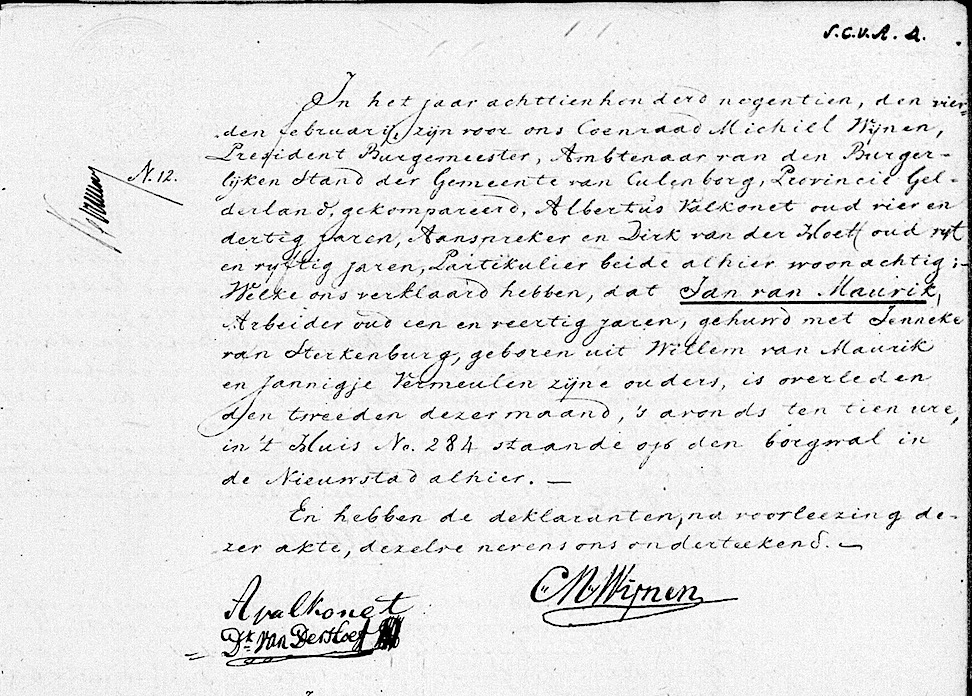 S.C.V.A. 4.
In het jaar achttienhonderd negentien, den vier-
den februarij, zijn voor ons Coenraad Michiel Wijnen,
President Burgemeester, Ambtenaar van den Burger-
N. 12.
lijken Stand der Gemeente van Culenborg, Provincie Gel-
derland, gekompareerd, Albertus Valkonet oud vier en
dertig jaren, Aanspreker en Dirk van der Hoeff oud vyf
en vyftig jaren, Partikulier beide alhier woonachtig;-
Welke ons verklaard hebben, dat Jan van Maurik,
Arbeider oud een en veertig jaren, gehuwd met Jenneke
van Sterkenburg, geboren uit Willem van Maurik
en Jannigje Vermeulen zijne ouders, is overleden
den tweeden dezer maand, 's avonds ten tien ure,
in 't Huis No. 284 staande op den borgwal in
de Nieuwstad alhier. —
En hebben de deklaranten, na voorleezing de-
zer akte, dezelve nevens ons onderteekend. —
A valkonet
CM Wijnen
Dk van Der Hoeff